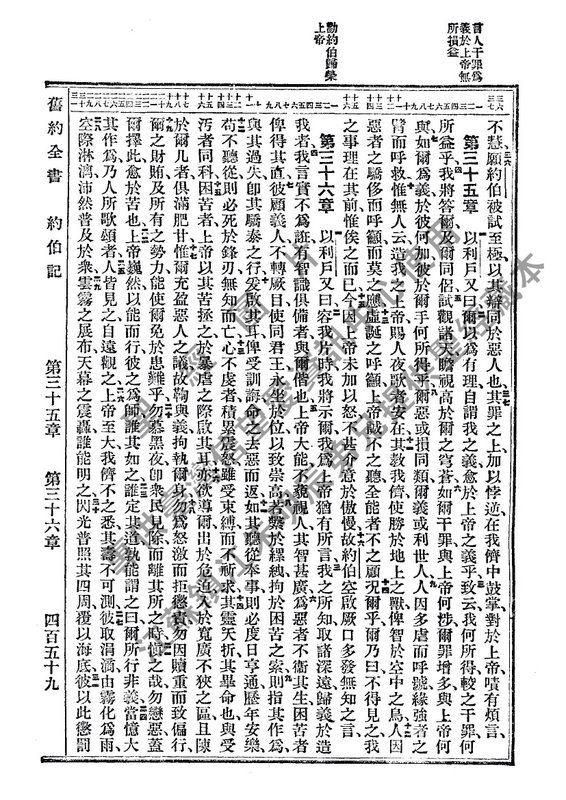 言人干罪為
義於上帝無
所損益
勸約伯歸榮
上帝
不慧願約伯被試至極以其辯同於惡人也其罪之上加以悖逆在我儕中鼓掌對於上帝嘖有煩言
第三十五章 以利戶又曰爾以為有理自謂我之義愈於上帝之義乎致云我何所得較之干罪何
所益乎我將答爾及爾同侶試觀諸天瞻視高於爾之穹蒼如爾干罪與上帝何涉爾罪增多與上帝何
與如爾為義於彼何加彼於爾手何所得乎爾惡或損同類爾義或利世人人因多虐而呼號緣強者之
臂而呼救惟無人云造我之上帝賜人夜歌者安在其教我儕使勝於地上之獸俾智於空中之鳥人因
惡者之驕侈而呼籲而莫之應虛誕之呼籲上帝誠不之聽全能者不之顧況爾乎爾乃曰不得見之我
之事理在其前惟俟之而已今因上帝未加以怒不甚介意於傲慢故約伯空啟厥口多發無知之言
第三十六章 以利戶又曰容我片時我將示爾我為上帝猶有所言我之所知取諸深遠歸義於造
我者我言實不為誑有智識俱備者與爾偕也上帝大能不藐視人其智甚廣為惡者不衞其生困苦者
俾得其直彼顧義人不轉厥目使同君王永坐於位以致崇高若繫於縲絏拘於困苦之索則指其作為
與其過失即其驕泰之行爰啟其耳俾受訓誨命之去惡而返如其聽從奉事則必度日亨通歷年安樂
苟不聽從則必死於鋒刃無知而亡心不虔者積累震怒雖受束縛而不祈求其靈夭折其畢命也與受
汚者同科困苦者上帝以其苦拯之於暴虐之際啟其耳亦欲導爾出於危迫入於寬廣不狹之區且陳
於爾几者俱滿肥甘惟爾充盈惡人之議故鞫與義拘執爾身勿為怒激而拒懲責勿因贖重而致偏行
爾之財賄及所有之勢力能使爾免於患難乎勿慕黑夜即人民見除而離其所之時慎之哉勿戀惡蓋
爾擇此愈於苦也上帝巍然以能而行彼之為師誰其如之誰定其道孰能謂之曰爾所行非義當憶大
其作為乃人所歌頌者人皆見之自遠觀之上帝至大我儕不之悉其壽不可測彼取涓滴由霧化為雨
空際淋漓沛然普及於衆雲霧之展布天幕之震轟誰能明之閃光普照其四周覆以海底彼以此懲罰
舊約全書 約伯記 第三十五章 第三十六章 四百五十九